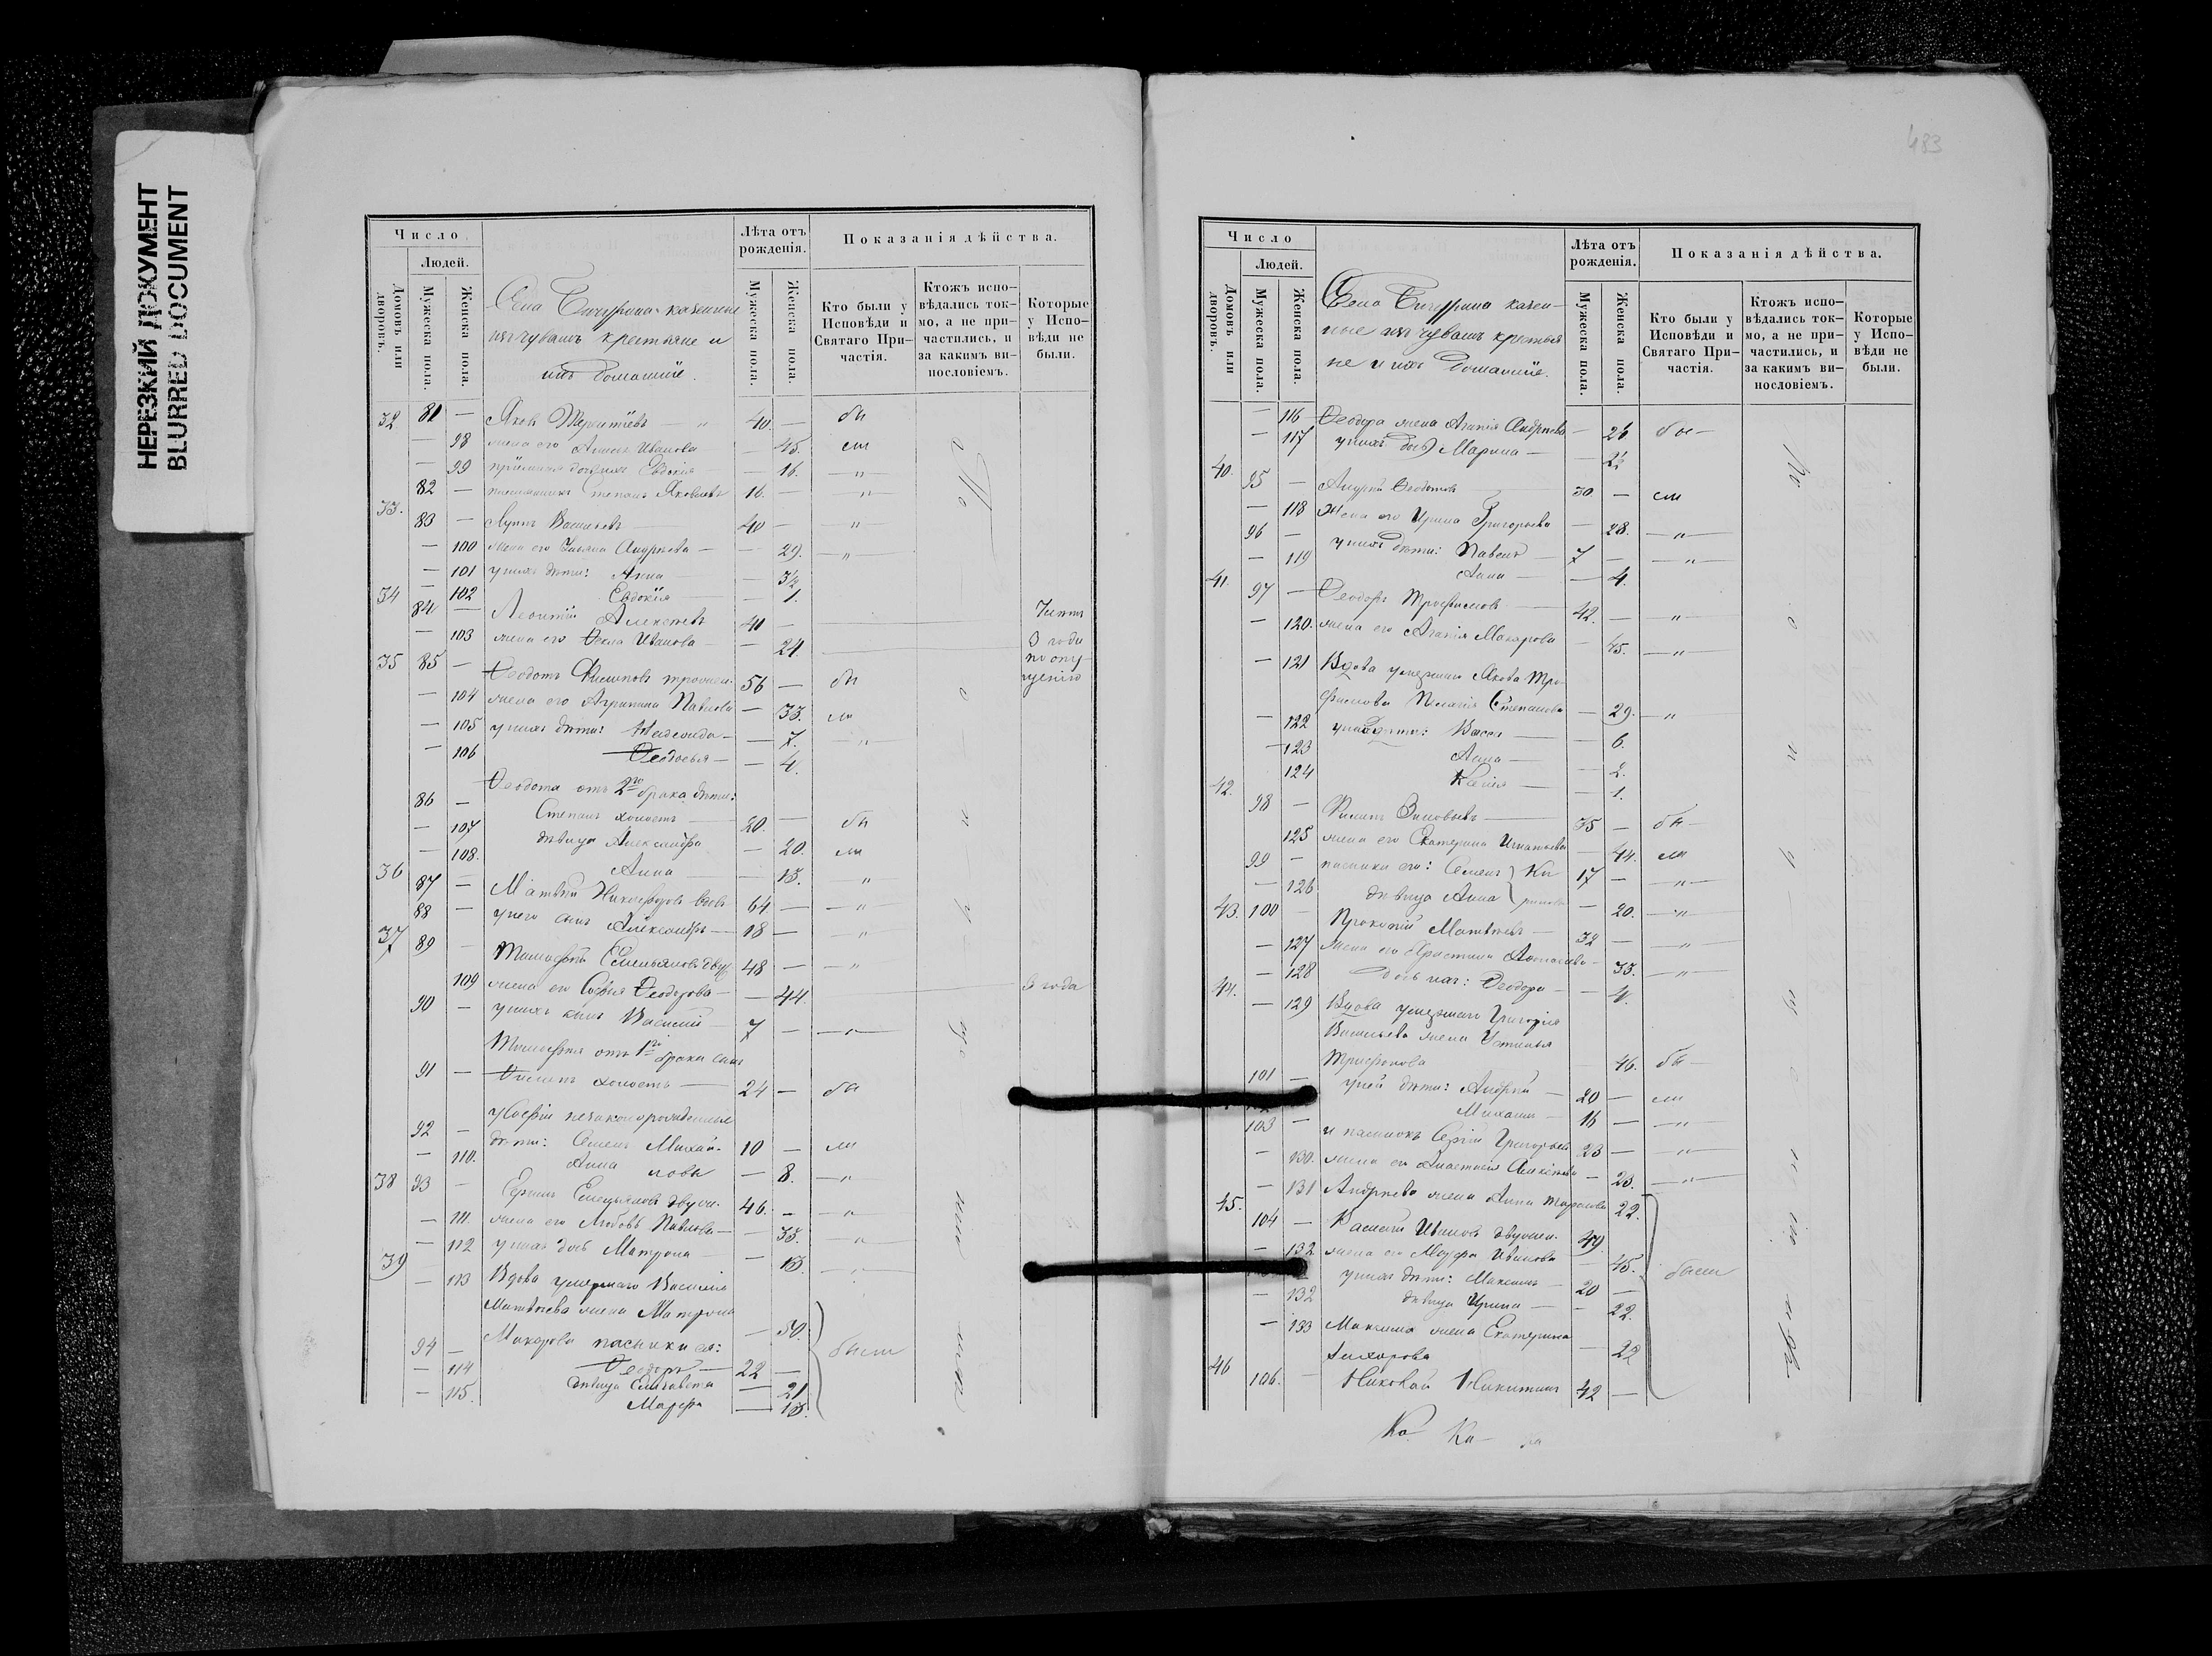 НЕРЕЗКИЙ ДОКУМЕНТ
BLURRED DOCUMENT
483
Число
Людей.
Домовъ или дворовъ.
Мужеска пола.
Женска пола.
Села Бичурина казенные
изъ чувашъ крестьяне и
ихъ домашніе.
Лѣта отъ рожденія.
Мужеска пола.
Женска пола.
Показанія дѣйства.
Кто были у Исповѣди и Святаго Причастія.
Ктожъ исповѣдались токмо, а не причастились, и за какимъ винословіемъ.
Которые у Исповѣди не были.
32 81 — Яковъ Терентіевъ — 40. — бы
— 98 жена его Анисья Иванова — 45. ли
— 99 Евдокія — 16. — " —
82 — племянникъ Степанъ Яковлевъ 16. — — " —
33. 83 — Лупъ Васильевъ 40 — "
— 100 жена его Ульяна Андреева — — 29. — " —
— 101 у нихъ дѣти: Анна — 3½
— 102 Евдокія — 1.
34 84 — Леонтій Алексѣевъ 41 —
— 103 жена его Ѳекла Иванова — — 24
3 года
по опу
щенію
35 85 — Ѳедотъ Филиповъ троежен. 56 — бы
— 104 жена его Агрипина Павлова — 33. ли
— 105 у нихъ дѣти: — 7. — " —
— 106 Ѳедосья — — 4.
Ѳедота отъ 2го брака дѣти:
86 — Степанъ холостъ — 20. — бы
— 107 дѣвица Александра — 20. ли
— 108. Анна — 13. "
36 87 — Матвѣй Никифоровъ вдовъ 64 — — " —
88 — у него сынъ Александръ — 18 — "
37 89 — Тимофей Емельяновъ двуж. 48 — "
109 жена его Софья Ѳеодорова — — 44. 3 года
90 — у нихъ сынъ Василій 7 — — " —
Тимофея отъ 1го брака сынъ
91 — Филипъ холостъ — 24 — бы
у Софіи незаконорожденные
92 — дѣти: Семенъ Михай- 10 — ли
— 110. Анна ловы — 8. — " —
38 93 — Емельяновъ двуж. 46. — "
— 111. жена его Любовь Павлова — — 33. — " —
— 112 у нихъ дочь Матрона — — 13. — " —
39 — 113 Вдова умершаго Василія
Матвѣева жена Матрона
Макарова пасынки ея: — 50.
94 — Ѳеодоръ — 22 — были
— 114 дѣвица Елизавета — 21
— 115. Марфа — 13.
Число
Людей.
Домовъ или дворовъ.
Мужеска пола.
Женска пола.
Села Бичурина казен-
ные изъ чувашъ крестья
не и ихъ домашніе.
Лѣта отъ рожденія.
Мужеска пола.
Женска пола.
Показанія дѣйства.
Кто были у Исповѣди и Святаго Причастія.
Ктожъ исповѣдались токмо, а не причастились, и за какимъ винословіемъ.
Которые у Исповѣди не были.
— 116 Ѳеодора жена Агапія Андреева — 26 бы —
— 117 у нихъ дочь Марина — — 2½
40. 95 — Андрей Ѳедотовъ 30 — ли
— 118 Жена его Ирина Григорьева — 28. — " —
96 — у нихъ дѣти: Павелъ 7 — — " —
— 119 Анна — — 4.
41. 97 — Ѳеодоръ Трофимовъ 42. — — " —
— 120. жена его Агапія Макарова — 45. — " —
— 121 Вдова умершаго Якова Тро-
фимова Пелагія Степанова — 29. — " —
— 122 дѣти: Васса — 6.
— 123 Анна — 2.
124 Ксенія — 1.
42. 98 — Филипъ Зиновьевъ — 35 — бы —
125 жена его Екатерина Игнатьева — 44. ли
99 — пасынки его: Семенъ 17 — — " —
— 126 дѣвица Анна — 20. — " —
43. 100 — Прокопій Матвѣевъ — 32 — — " —
— 127 жена его Христина — 33. — " —
— 128 дочь ихъ: Ѳеодора — — 4.
44. — 129 Вдова умершаго Григорія
Васильева жена Устинья
Трифонова 46. бы —
101 — у ней дѣти: Андрей — 20 — ли
Михаилъ — 16 — — " —
103 — и пасынокъ Сергій Григорьевъ 23 — — " —
— 130. жена его Анастасія Алексѣева — 23. — " —
— 131 Андреева жена Анна Тарасова 22.
45. 104 — Василій Ивановъ двужен. 49.
— 132 жена его Марфа Иванова — 45. были
у нихъ дѣти: Максимъ — 20 —
— 132 дѣвица Ирина — — 22.
— 133 Максима жена Екатерина
— 22
46 106. — Николай Никитинъ 42 —